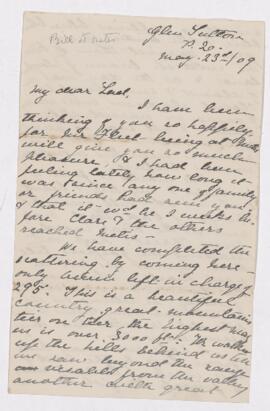 Glen Sutton
P.2.
May. 23rd/09
Bill at Metis
My dear Lad.
I have been
thinking of you so happily
for
being at Metis
will give you so much
pleasure, & I had been
feeling lately how long it
was since any one of family
or friends had seen you
& that it wd be 2 weeks be-
fore Clare & the others
reached Metis -
We have completed the
scattering by coming here -
only being left in charge
of 295. This is a beautiful
country great mountains
tier on tier the highest near
us is over 3000 ft. We walked
up the hills behind us &
we saw beyond the range
visable from the valley
another with great